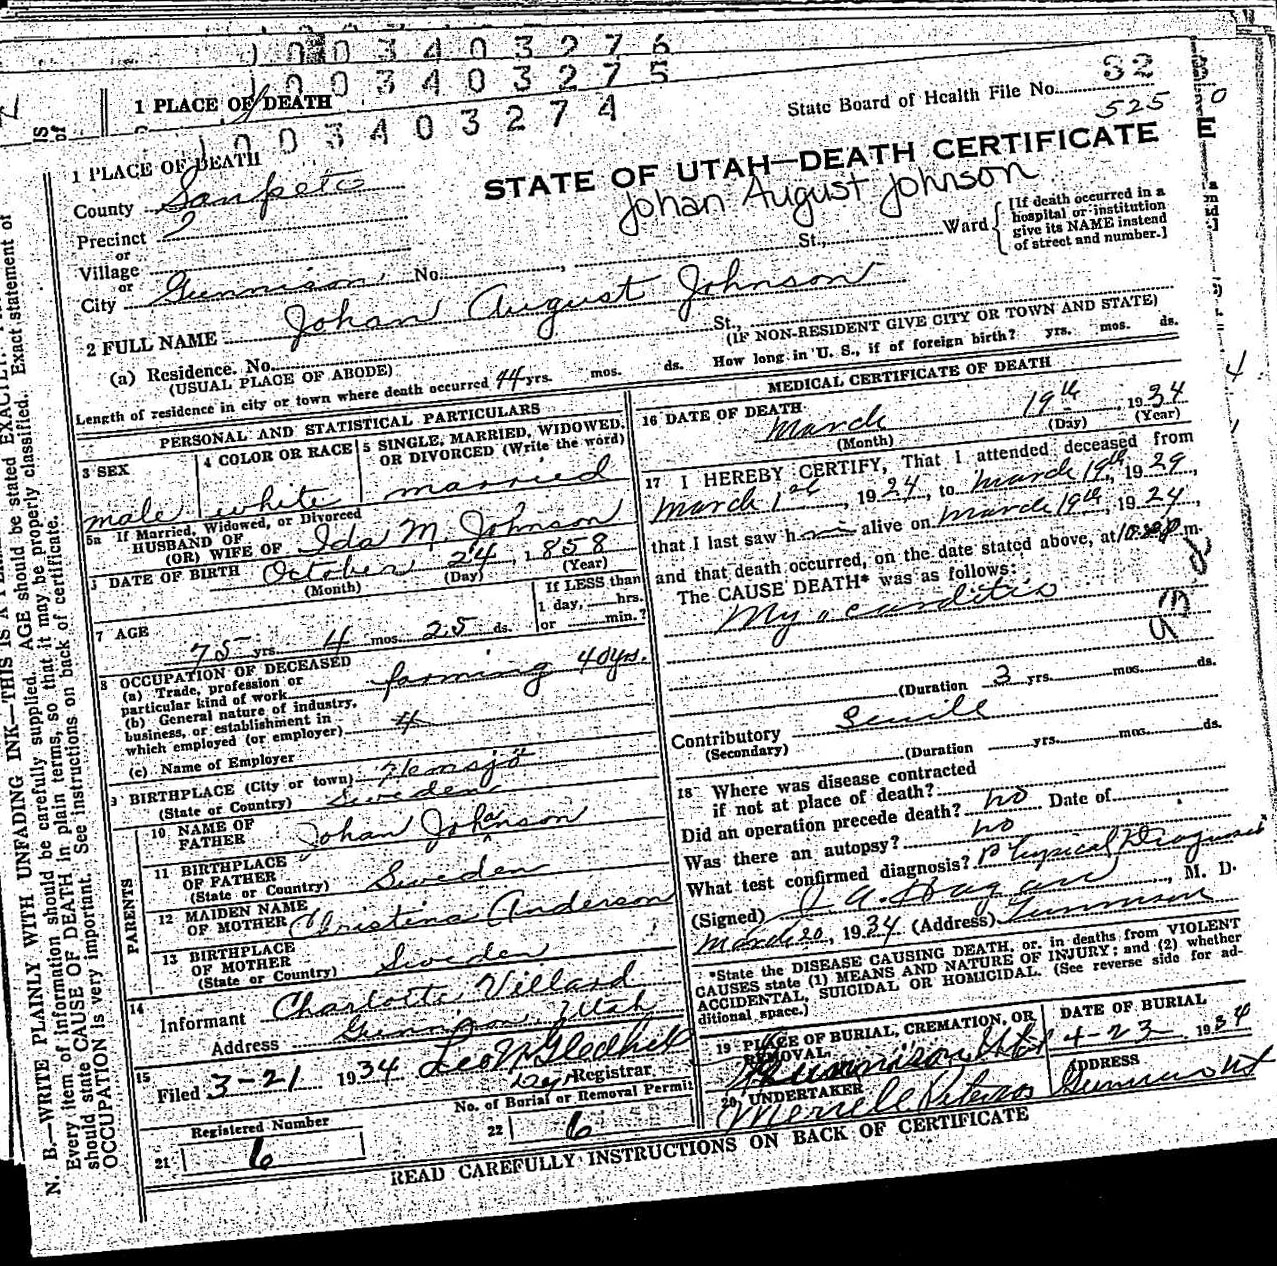 1003403276
1003403275
1 PLACE OF DEATH
1003403274
State Board of Health File No. 32
525
1 PLACE OF DEATH
STATE OF UTAH—DEATH CERTIFICATE
Johan August Johnson
County Sanpete
Precinct 2
or
Village
or
City Gunnison No. , St., Ward
[If death occurred in a hospital or institution give its NAME instead of street and number.]
2 FULL NAME Johan August Johnson
(a) Residence. No. St.,
(USUAL PLACE OF ABODE) (IF NON-RESIDENT GIVE CITY OR TOWN AND STATE)
Length of residence in city or town where death occurred 44 yrs. mos. ds. How long in U. S., if of foreign birth? yrs. mos. ds.
PERSONAL AND STATISTICAL PARTICULARS
3 SEX
male
4 COLOR OR RACE
white
5 SINGLE, MARRIED, WIDOWED, OR DIVORCED (Write the word)
married
5a If Married, Widowed, or Divorced
HUSBAND OF
(OR) WIFE OF Ida M. Johnson
DATE OF BIRTH October 24, 1858
(Month) (Day) (Year)
7 AGE
75 yrs. 4 mos. 25 ds.
If LESS than
1 day, hrs.
or min.?
8 OCCUPATION OF DECEASED
(a) Trade, profession or
particular kind of work farming 40 yrs.
(b) General nature of industry,
business, or establishment in
which employed (or employer) 4
(c) Name of Employer
9 BIRTHPLACE (City or town) Hemsjö
(State or Country) Sweden
PARENTS
10 NAME OF
FATHER Johan Johanson
11 BIRTHPLACE
OF FATHER
(State or Country) Sweden
12 MAIDEN NAME
OF MOTHER Christina Anderson
13 BIRTHPLACE
OF MOTHER
(State or Country) Sweden
14
Informant Charlotte Villard
Address Gunnison, Utah
15
Filed 3-21 1934 Leo N Gledhill
Dep Registrar
Registered Number
21 6
No. of Burial or Removal Permit
22 6
MEDICAL CERTIFICATE OF DEATH
16 DATE OF DEATH
March 19th, 1934
(Month) (Day) (Year)
17 I HEREBY CERTIFY, That I attended deceased from
March 1st, 1924, to March 19th, 1929,
that I last saw him alive on March 19th, 1924,
and that death occurred, on the date stated above, at m.
The CAUSE DEATH* was as follows:
Myocarditis
93
(Duration 3 yrs. mos. ds.
Contributory Senile
(Secondary)
(Duration yrs. mos. ds.
18 Where was disease contracted
if not at place of death?
Did an operation precede death? no Date of
Was there an autopsy? no
What test confirmed diagnosis? Physical Diagnosis
(Signed) J. A. Hagan, M. D.
March 20, 1934 (Address) Gunnison
*State the DISEASE CAUSING DEATH, or, in deaths from VIOLENT
CAUSES state (1) MEANS AND NATURE OF INJURY; and (2) whether
ACCIDENTAL, SUICIDAL OR HOMICIDAL. (See reverse side for ad-
ditional space.)
19 PLACE OF BURIAL, CREMATION, OR
REMOVAL.
Gunnison Utah
DATE OF BURIAL
4-23 1934
20 UNDERTAKER
ADDRESS
Gunnison Ut
READ CAREFULLY INSTRUCTIONS ON BACK OF CERTIFICATE
N. B.—WRITE PLAINLY WITH UNFADING INK—THIS IS A
Every item of information should be carefully supplied. AGE should be stated Exact statement of
should state CAUSE OF DEATH in plain terms, so that it may be properly classified.
OCCUPATION is very important. See instructions on back of certificate.